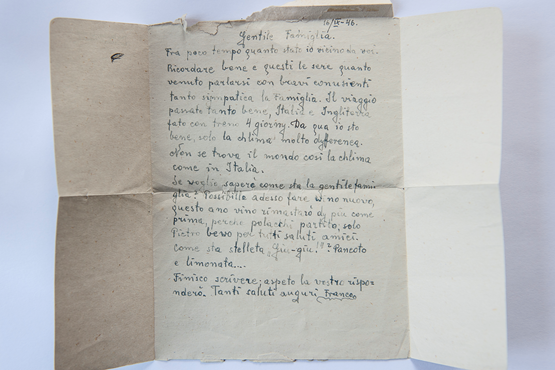 16/IX-46.
Gentile Famiglia.
Fra poco tempo quanto stato io vicino da voi.
Ricordare bene e questi le sere quanto
venuto parlarsi con bravi conusienti
tanto simpatica la Famiglia. Il viaggio
passato tanto bene, Italia e Inglitorra
fato con treno 4 giorny. Da qua io sto
bene, solo la chlima molto dyfferenca.
Non se trova il mondo cosi la chlima
come in Italia.
Se voglio sapere come sta la gentile fami-
glia? Possibillo adesso fare w. no nuovo,
questo ano vino rimastaro di piu come
prima, perche polacchi partito, solo
Pietro bewo per tutti saluti amici.
Come sta stelleta, Giu-giu! Pancoto
e limonata...
Finisco scrivere; aspeto la vostro rispon-
nderò. Tanti saluti auguri Franco